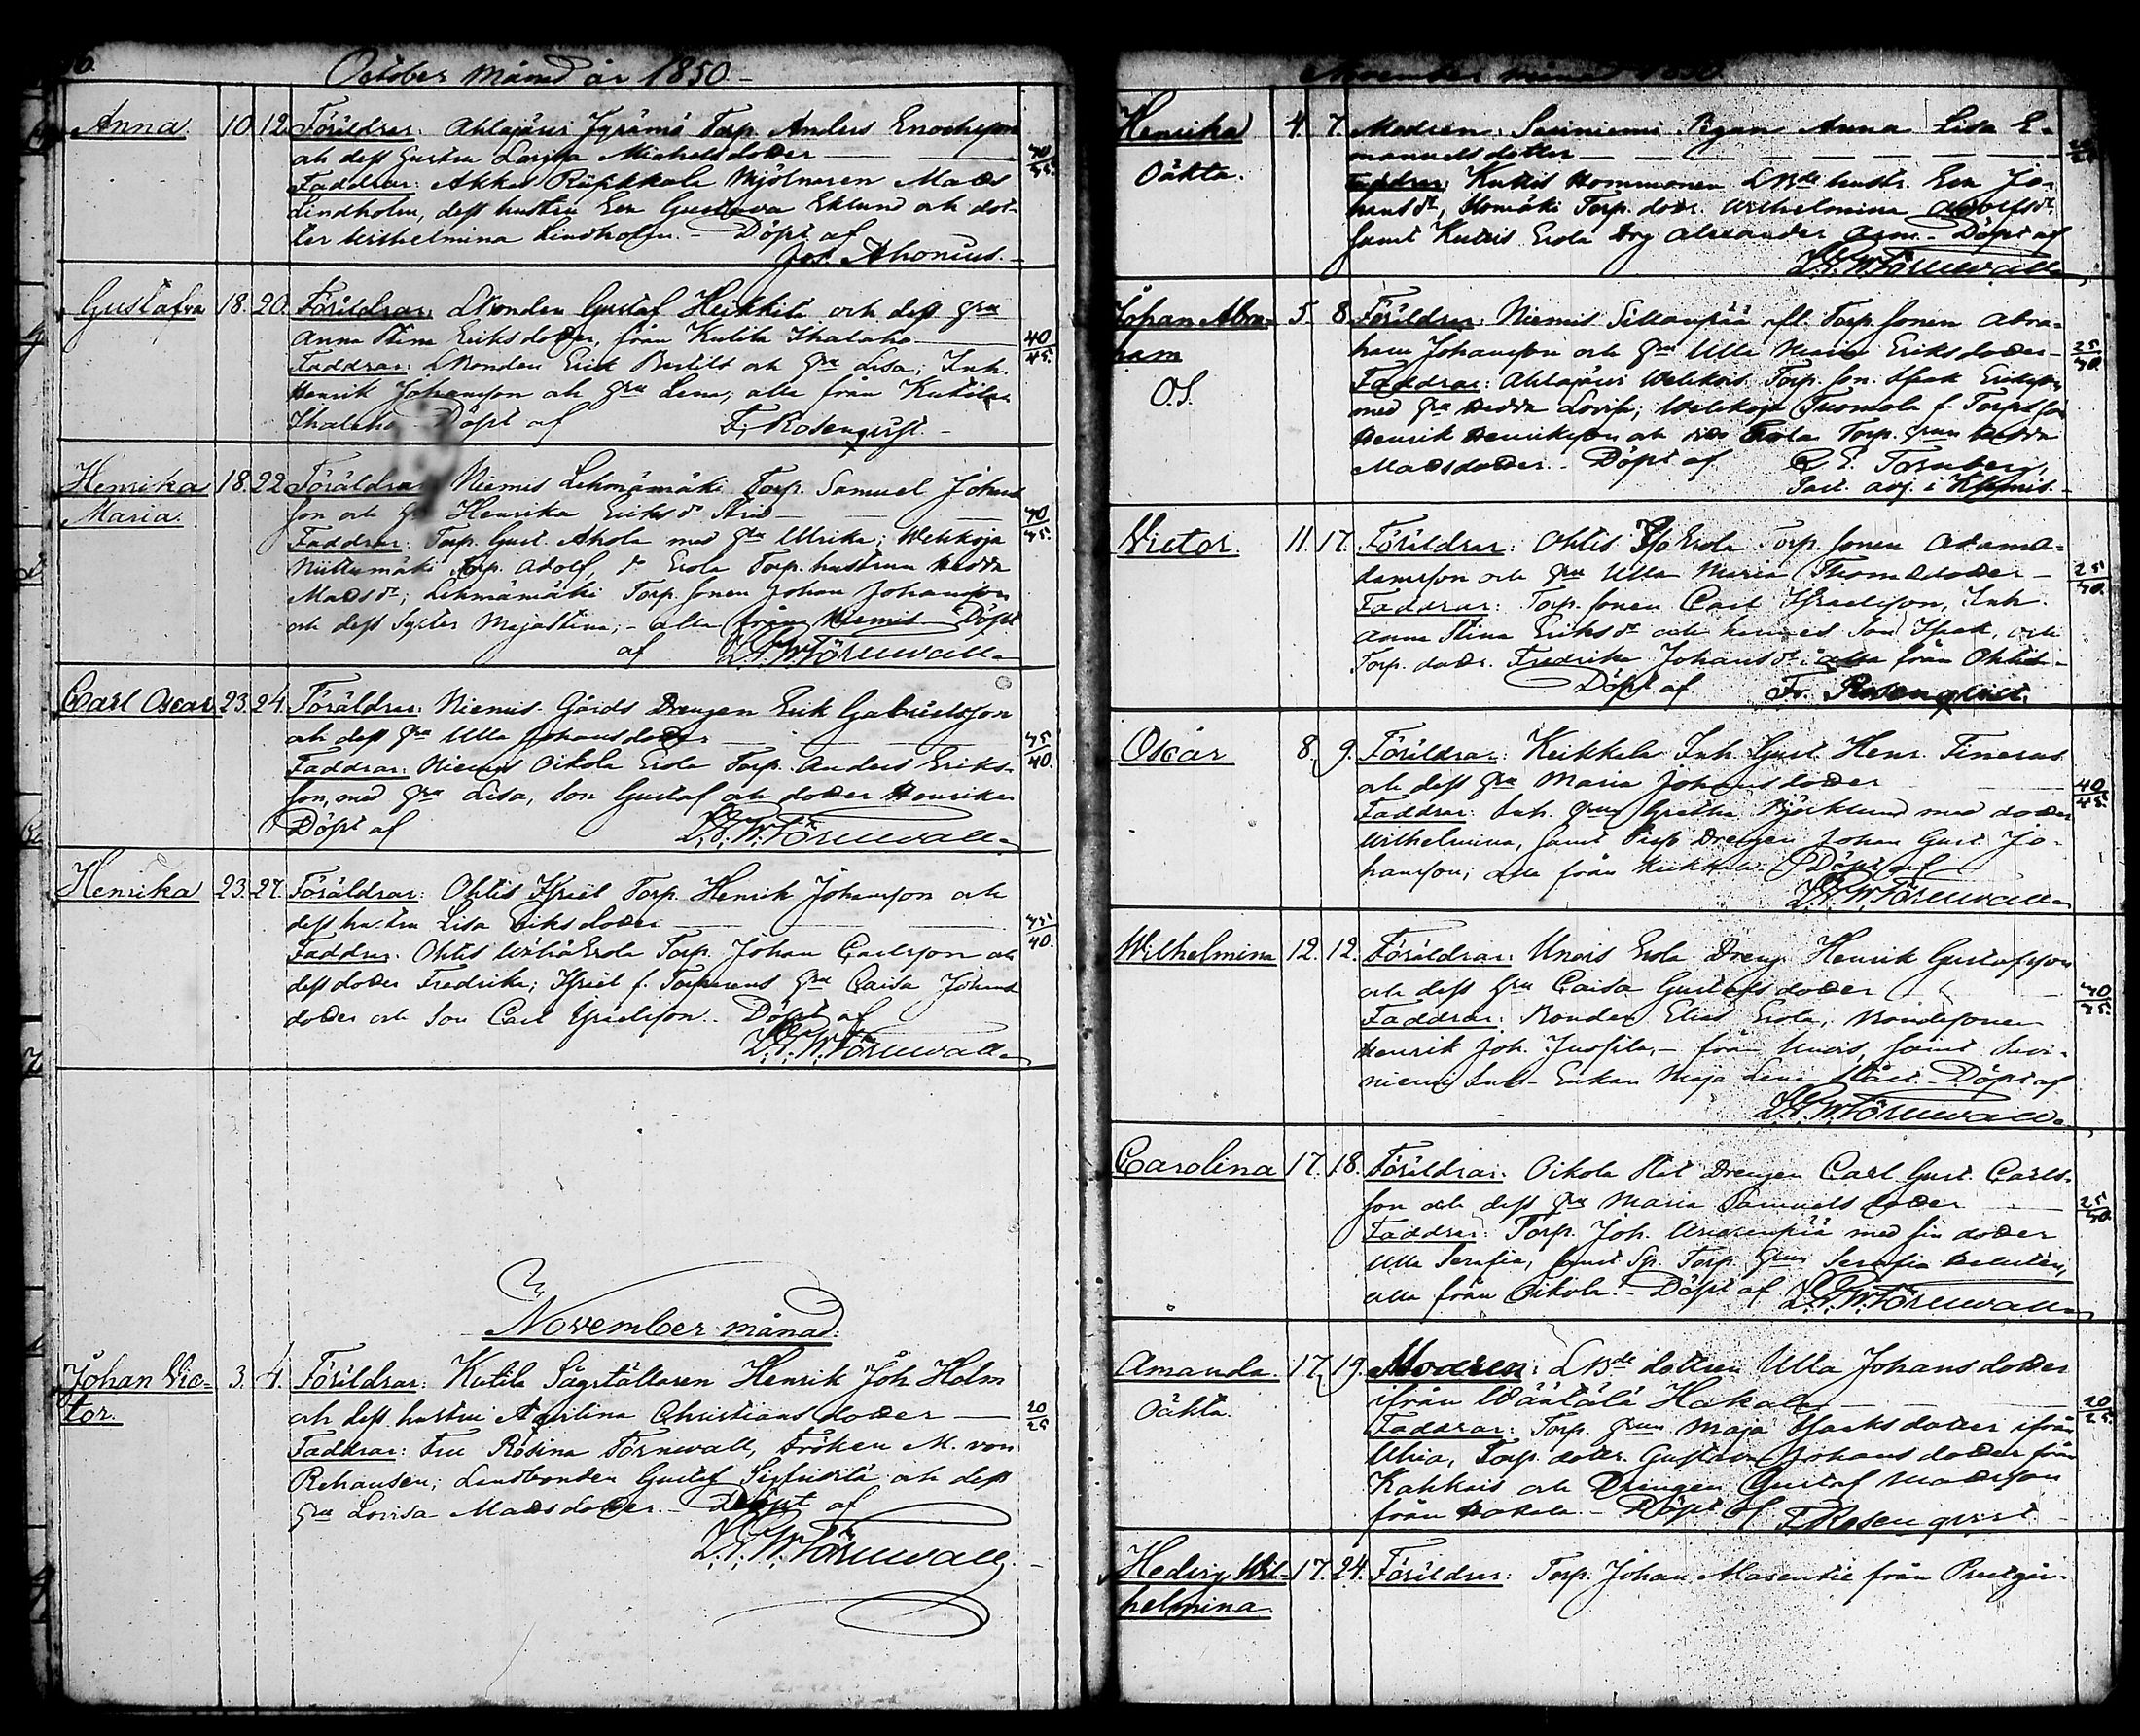 October månad år 1850 -
Anna. 10. 12. Föräldrar: Ahlajärvi Jyrämä Torp. Anders Enochsson
och dess hustru Lovisa Michelsdotter — 30/35.
Faddrar: Akkas Ruskkala Mjölnaren Mats
Lindholm, dess hustru Eva Gustava Eklund och dot-
ter Wilhelmina Lindholm. - Döpt af
Jos. Ahonius. -
Gustafva 18. 20. Föräldrar: LBonden Gustaf Heikkilä och dess hru
Anna Stina Eriksdotter, från Kutila Ihalaho — 40/45.
Faddrar: LBonden Erik och hru Lisa; Inh.
Henrik Johansson och hru Lena, alla från Kutila
Ihalaho - Döpt af F. Rosenqvist. -
Henrika 18. 22. Föräldrar: Niemis Lehmämäki Torp. Samuel Johans
Maria. son och hru Henrika Eriksdr — 30/35.
Faddrar: Torp. Gust. Ahola med hru Ulrika; Wehkoja
Niittumäki Torp. Adolf, dr Erola Torp. hustrun Hedda
Matsdr; Lehmämäki Torp. sonen Johan Johansson
och dess syster Majastina; - alla från Niemis - Döpt
af D.G.W. Törnwall
Carl Oscar 23. 24. Föräldrar: Niemis Gårds Drengen Erik Gabrielsson
och dess hru Ulla Johansdotter — 35/40.
Faddrar: Niemis Oikola Erola Torp. Anders Eriks-
son, med hru Lisa, Son Gustaf och dotter Henrika
Döpt af D.G.W. Törnwall
Henrika 23. 27. Föräldrar: Ohtis Torp. Henrik Johansson och
dess hustru Lisa Eriksdotter — 35/40.
Faddrar: Ohtis Torp. Johan Carlsson och
dess dotter Fredrika; f. Torparens hru Caisa Johans
dotter och Son Carl - Döpt af
D.G.W. Törnwall
November månad:
Johan Vic- 3. 4. Föräldrar: Kutila Sågställaren Henrik Joh Holm
tor. och dess hustru Aqvilina Christiansdotter — 20/25
Faddrar: Fru Rosina Törnwall, Fröken M. von
Rehausen; Landbonden Gustaf Sigfridilä och dess
hru Lovisa Matsdotter. - Döpt af
D.G.W. Törnwall. -
November månad 1850
Henrika 4. 7. Modren: Saviniemi Pigan Anna Lisa E-
Oäkta. manuelsdotter —
Faddrar: Kutis Hommonen LBde hustr. Eva Jo-
hansdr, Torp. dotr. Wilhelmina Adolfsdr.
samt Kutis Erola Drg Alexander - Döpt af
D.G.W. Törnwall
Johan Abra- 5. 8. Föräldrar: Niemis Sillanpää Torp. sonen Abra-
ham ham Johansson och hru Ulla Maria Eriksdotter - 25/30.
O.S. Faddrar: Ahlajärvi Torp. son. Isak Eriksson
med hru Hedda Lovisa; Wehkoja Tuomola f. Torp. son
Henrik Henriksson och Erola Torp. hrun Hedda
Matsdotter. - Döpt af G. E. Tornberg,
adj. i
Victor. 11. 17. Föräldrar: Ohtis Erola Torp. sonen Adam A-
damsson och hru Ulla Maria Thomasdotter - 25/30.
Faddrar: Torp. sonen Carl Israelsson, Inh.
Anna Stina Eriksdr och hennes Son Isak, och
Torp. dotr. Fredrika Johansdr; alla från Ohtis -
Döpt af Fr. Rosenqvist.
Oscar 8. 9. Föräldrar: Keikkala Inh. Gust. Henr. Finerus
och dess hru Maria Johansdotter — 40/45.
Faddrar: Inh. hrun Gretha Björklund med dotter
Wilhelmina, samt Drengen Johan Gust. Jo-
hansson; alla från Keikkala. Döpt af
D.G.W. Törnwall
Wilhelmina 12. 12. Föräldrar: Erola Dreng. Henrik Gustafsson
och dess hru Caisa Gustafsdotter — 30/35.
Faddrar: Bonden Elias Erola, Bondesonen
Henrik Joh. Jussila, - från, samt Savi-
niemi Inh. Enkan Maja Lena - Döpt af
D.G.W. Törnwall
Carolina 17. 18. Föräldrar: Oikola Drengen Carl Gust. Carls-
son och dess hru Maria Samuelsdotter — 25/30.
Faddrar: Torp. Joh. med sin dotter
Ulla Serafia, samt Torp. hrun Serafia,
alla från Oikola. - Döpt af D.G.W. Törnwall
Amanda. 17. 19. Modren: LBde dottren Ulla Johansdotter
Oäkta. ifrån Wäätälä Hakala — 20/25
Faddrar: Torp. hrun Maja Isaksdotter ifrån
Uhia, Torp. dotr. Gustava Johansdotter från
Kakkois och Drengen Gustaf Matsson
från Hakala - Döpt af F. Rosenqvist
Hedvig Wil- 17. 24. Föräldrar: Torp. Johan från Prestgår-
helmina